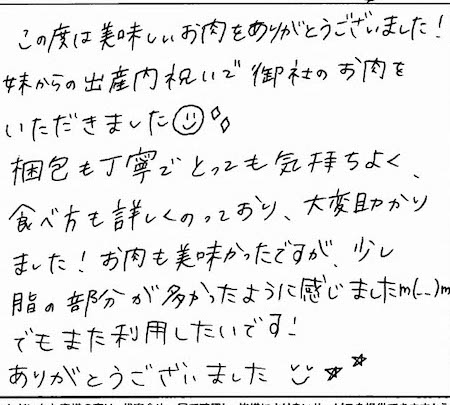 この度は美味しいお肉をありがとうございました!
妹からの出産内祝いで御社のお肉を
いただきました
梱包も丁寧でとっても気持ちよく、
食べ方も詳しくのっており、大変助かり
ました!お肉も美味かったですが、少し
脂の部分が多かったように感じましたm(_ _)m
でもまた利用したいです!
ありがとうございました